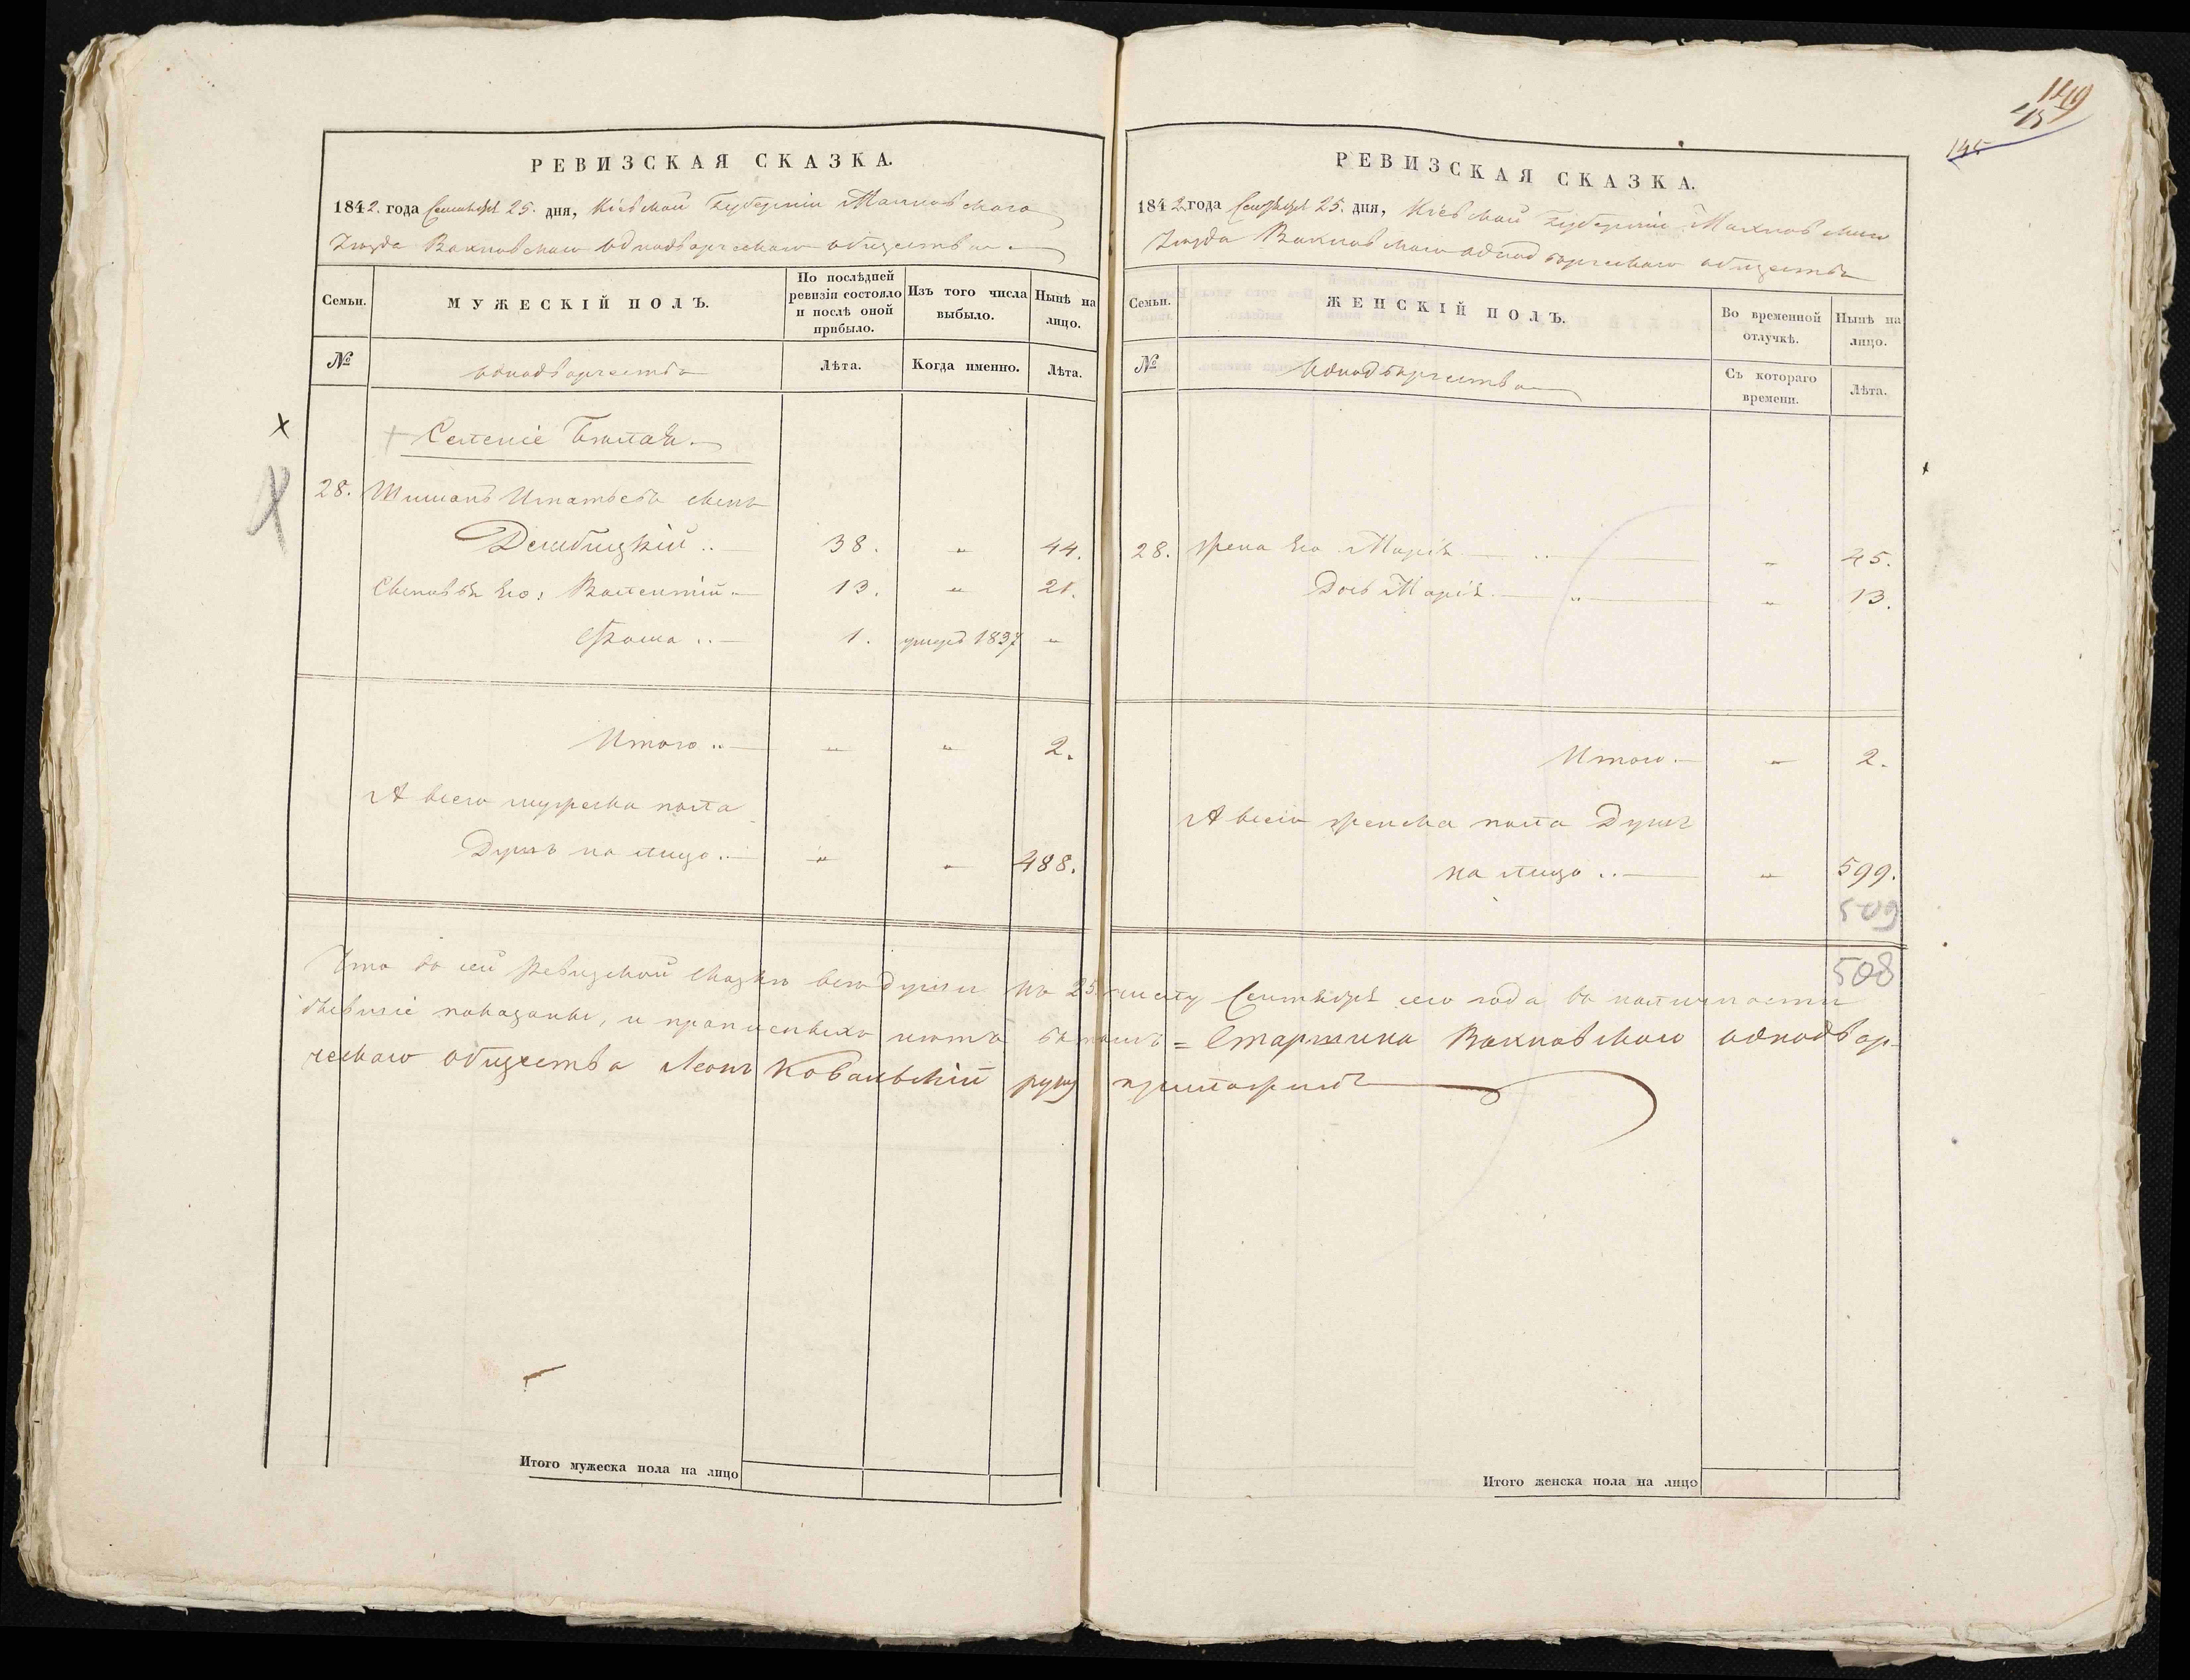 РЕВИЗСКАЯ СКАЗКА.
1842. года Сентября 25. дня, Кіевской Губерніи Махновскаго
Уѣзда Вахновскаго однодворческаго общества
Семьи.
МУЖЕСКІЙ ПОЛЪ.
По послѣдней ревизіи состояло и послѣ оной прибыло.
Изъ того числа выбыло.
Нынѣ на лицо.
№
однодворчества
Лѣта.
Когда именно.
Лѣта.
Селеніе
28. Игнатьевъ сынъ
38. „ 44.
Сыновья Его: Валентій 13. „ 21.
Ѳома 1. умеръ 1837 „
Итого „ „ 2.
А всего мужеска пола
Душъ на лицо „ „ 488.
РЕВИЗСКАЯ СКАЗКА.
1842 года Сентября 25. дня, Кіевской Губерніи Махновскаго
Уѣзда Вахновскаго однодворческаго общества
Семьи.
ЖЕНСКІЙ ПОЛЪ.
Во временной отлучкѣ.
Нынѣ на лицо.
№
однодворчества
Съ котораго времени.
Лѣта.
28. жена Его Марія „ 45.
Дочь Марія „ 13.
Итого „ 2.
А всего женска пола Душъ
на лицо „ 599.
509
508
Что въ сей Ревизской Сказкѣ всѣ души по 25 число Сентября сего года въ наличности
показаны, и прописныхъ нѣтъ = Старшина Вахновскаго однодвор-
ческаго общества Леонъ Ковальскій руку приложилъ
Итого мужеска пола на лицо
Итого женска пола на лицо
149
145